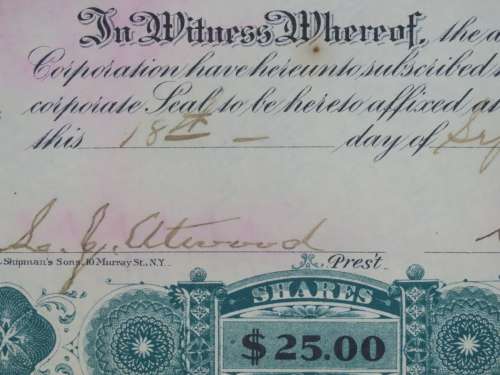 In Witness Whereof, the
Corporation have hereunto subscribed
corporate Seal to be hereto affixed
this 18th day of
Atwood
Shipman's Sons, 10 Murray St., N.Y. Pres't
SHARES
$25.00